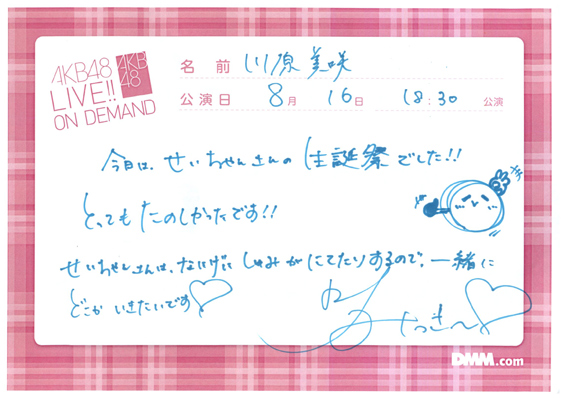 AKB48
LIVE!!
ON DEMAND
AKB
48
名前 川原美咲
公演日 8月 16日 18:30 公演
今日は、せいちゃんさんの生誕祭でした!!
とってもたのしかったです!!
せいちゃんさんは、なにげにしゅみがにてたりするので、一緒に
どこかいきたいです♡
DMM.com